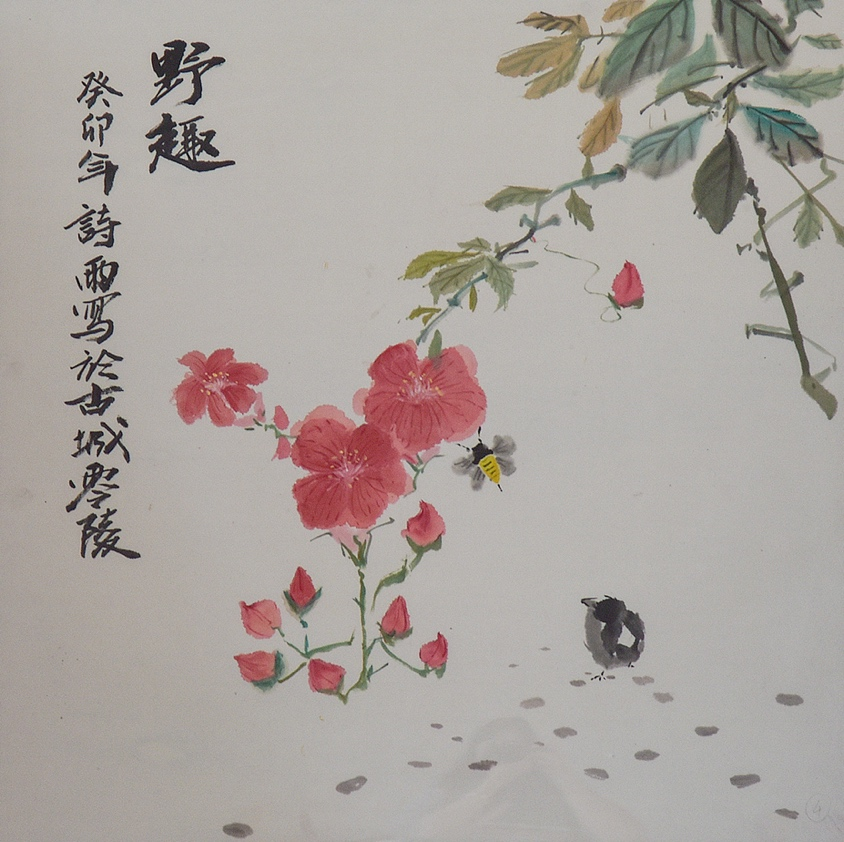 野趣
癸卯年詩雨寫於古城零陵